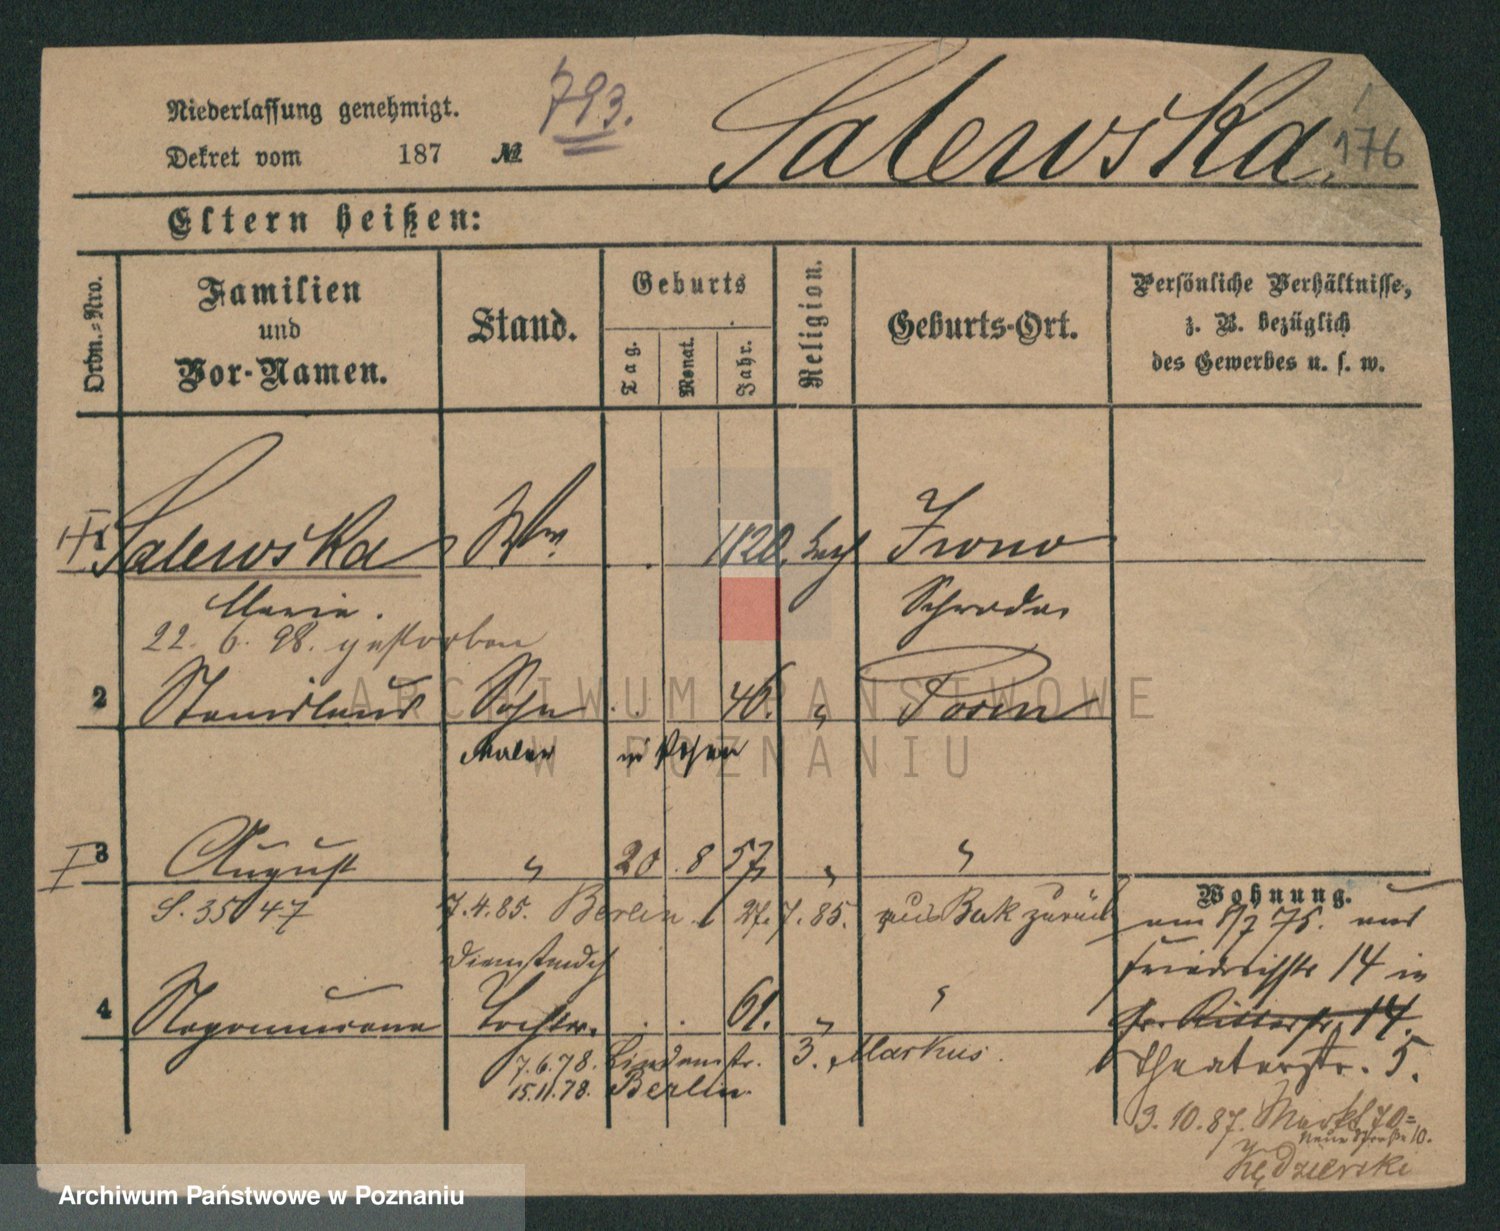 Niederlassung genehmigt.
793.
Dekret vom 187 №
Salewska
176
Eltern heißen:
Ordn.-Nro.
Familien
und
Vor-Namen.
Stand.
Geburts
Tag.
Monat.
Jahr.
Religion.
Geburts-Ort.
Persönliche Verhältnisse,
z. B. bezüglich
des Gewerbes u. s. w.
1 Salewska Ww. 1820.
Marie. Schroda
22. 6. 98. gestorben
2 Stanislaus Sohn 46. " Posen
Maler in Posen
3 August " 20 8 57 " "
S. 35 47 7.4.85. Berlin. 27.7.85. aus Buk zurück
Wohnung.
am 8/7 75. aus
Friedrichstr 14 in
gr. Ritterstr. 14.
Theaterstr. 5.
Dienstmdch
4 Tochter. 61. " "
7.6.78. Lindenstr. 3. Markus.
15.11.78. Berlin.
3.10.87. Markt 70=
Neue Straße 10.
Kędzierski
ARCHIWUM PAŃSTWOWE
W POZNANIU
Archiwum Państwowe w Poznaniu